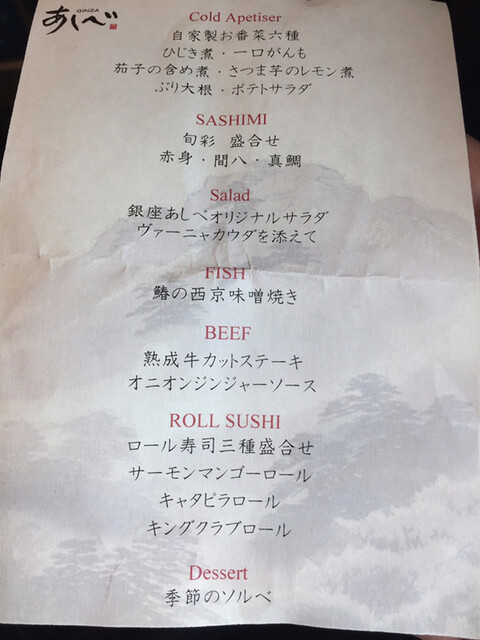 GINZA
あしべ
Cold Apetiser
自家製お番菜六種
ひじき煮・一口がんも
茄子の含め煮・さつま芋のレモン煮
ぶり大根・ポテトサラダ
SASHIMI
旬彩 盛合せ
赤身・間八・真鯛
Salad
銀座あしべオリジナルサラダ
ヴァーニャカウダを添えて
FISH
鰆の西京味噌焼き
BEEF
熟成牛カットステーキ
オニオンジンジャーソース
ROLL SUSHI
ロール寿司三種盛合せ
サーモンマンゴーロール
キャタピラロール
キングクラブロール
Dessert
季節のソルベ